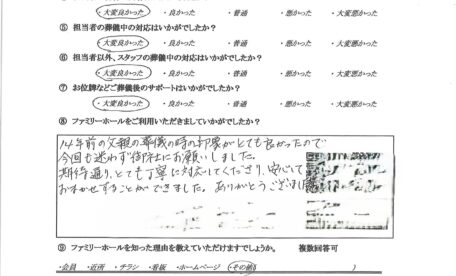 ・大変良かった ・良かった ・普通 ・悪かった ・大変悪かった
⑤ 担当者の葬儀中の対応はいかがでしたか？
・大変良かった ・良かった ・普通 ・悪かった ・大変悪かった
⑥ 担当者以外、スタッフの葬儀中の対応はいかがでしたか？
・大変良かった ・良かった ・普通 ・悪かった ・大変悪かった
⑦ お位牌などご葬儀後のサポートはいかがでしたか？
・大変良かった ・良かった ・普通 ・悪かった ・大変悪かった
⑧ ファミリーホールをご利用いただきましていかがでしたか？
14年前の父親の葬儀の時の印象がとても良かったので
今回も迷わず御社にお願いしました。
期待通り、とても丁寧に対応してくださり、安心して
おまかせすることができました。ありがとうございました
⑨ ファミリーホールを知った理由を教えていただけますでしょうか。 複数回答可
・会員 ・近所 ・チラシ ・看板 ・ホームページ ・その他( )